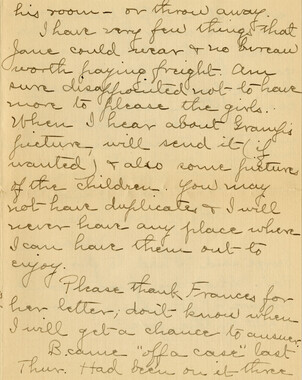 his room - or throw away.
I have very few things that
Jane could wear & no bureau
worth paying freight. Am
sure disappointed not to have
more to please the girls.
When I hear about Gramp's
picture will send it (if
wanted) & also some pictures
of the children. You may
not have duplicates & I will
never have any place where
I can have them out to
enjoy.
Please thank Frances for
her letter; don't know when
I will get a chance to answer.
B. came "off a case" last
Thur. Had been on it three